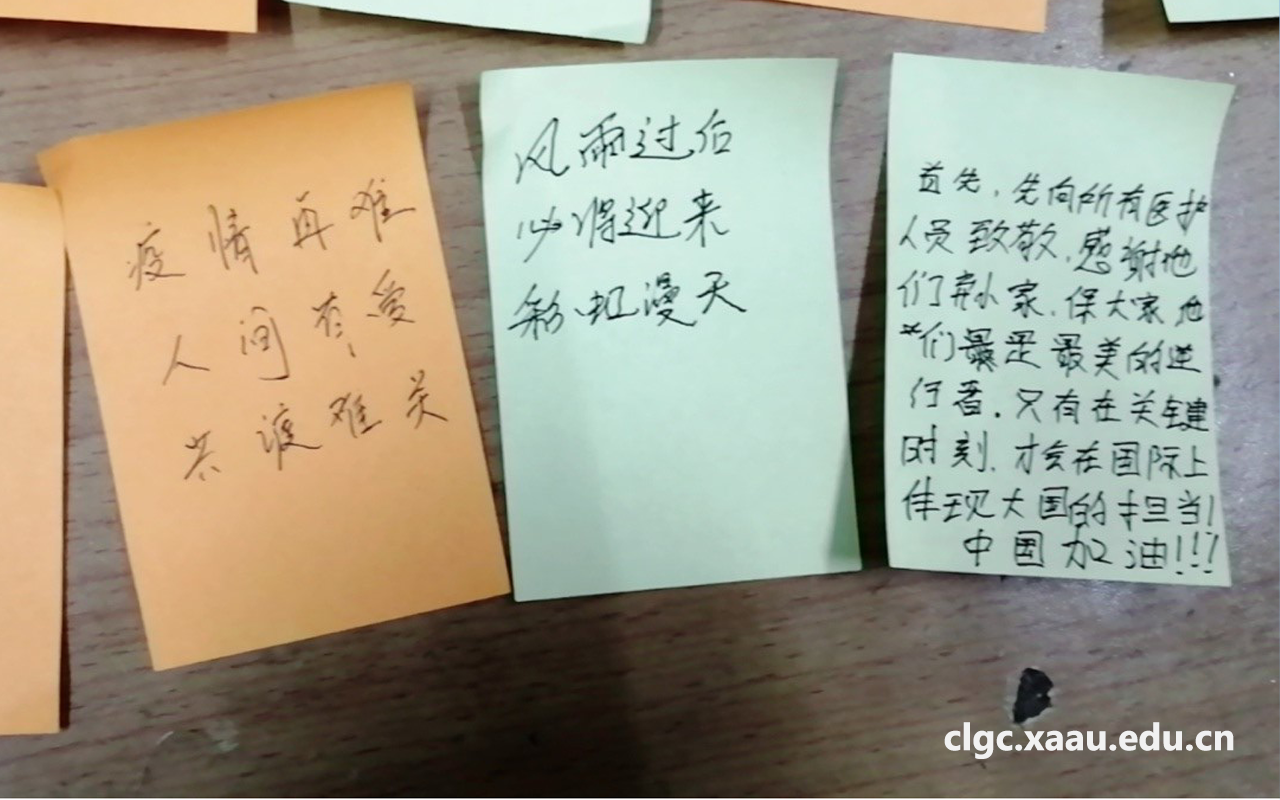 疫情再难
人间有爱
共渡难关
风雨过后
必得迎来
彩虹漫天
首先，先向所有医护
人员致敬，感谢他
们弃小家，保大家他
们最是最美的逆
行者，只有在关键
时刻，才会在国际上
体现大国的担当！
中国加油！！！
clgc.xaau.edu.cn